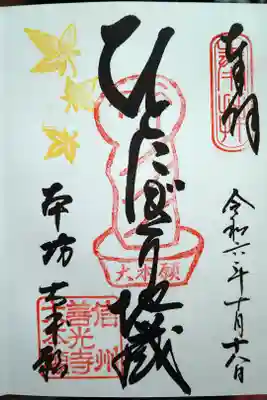 奉拝
令和六年十月十八日
ひとにぎり地蔵
大本願
本坊 大本願
信州
善光寺
大本願